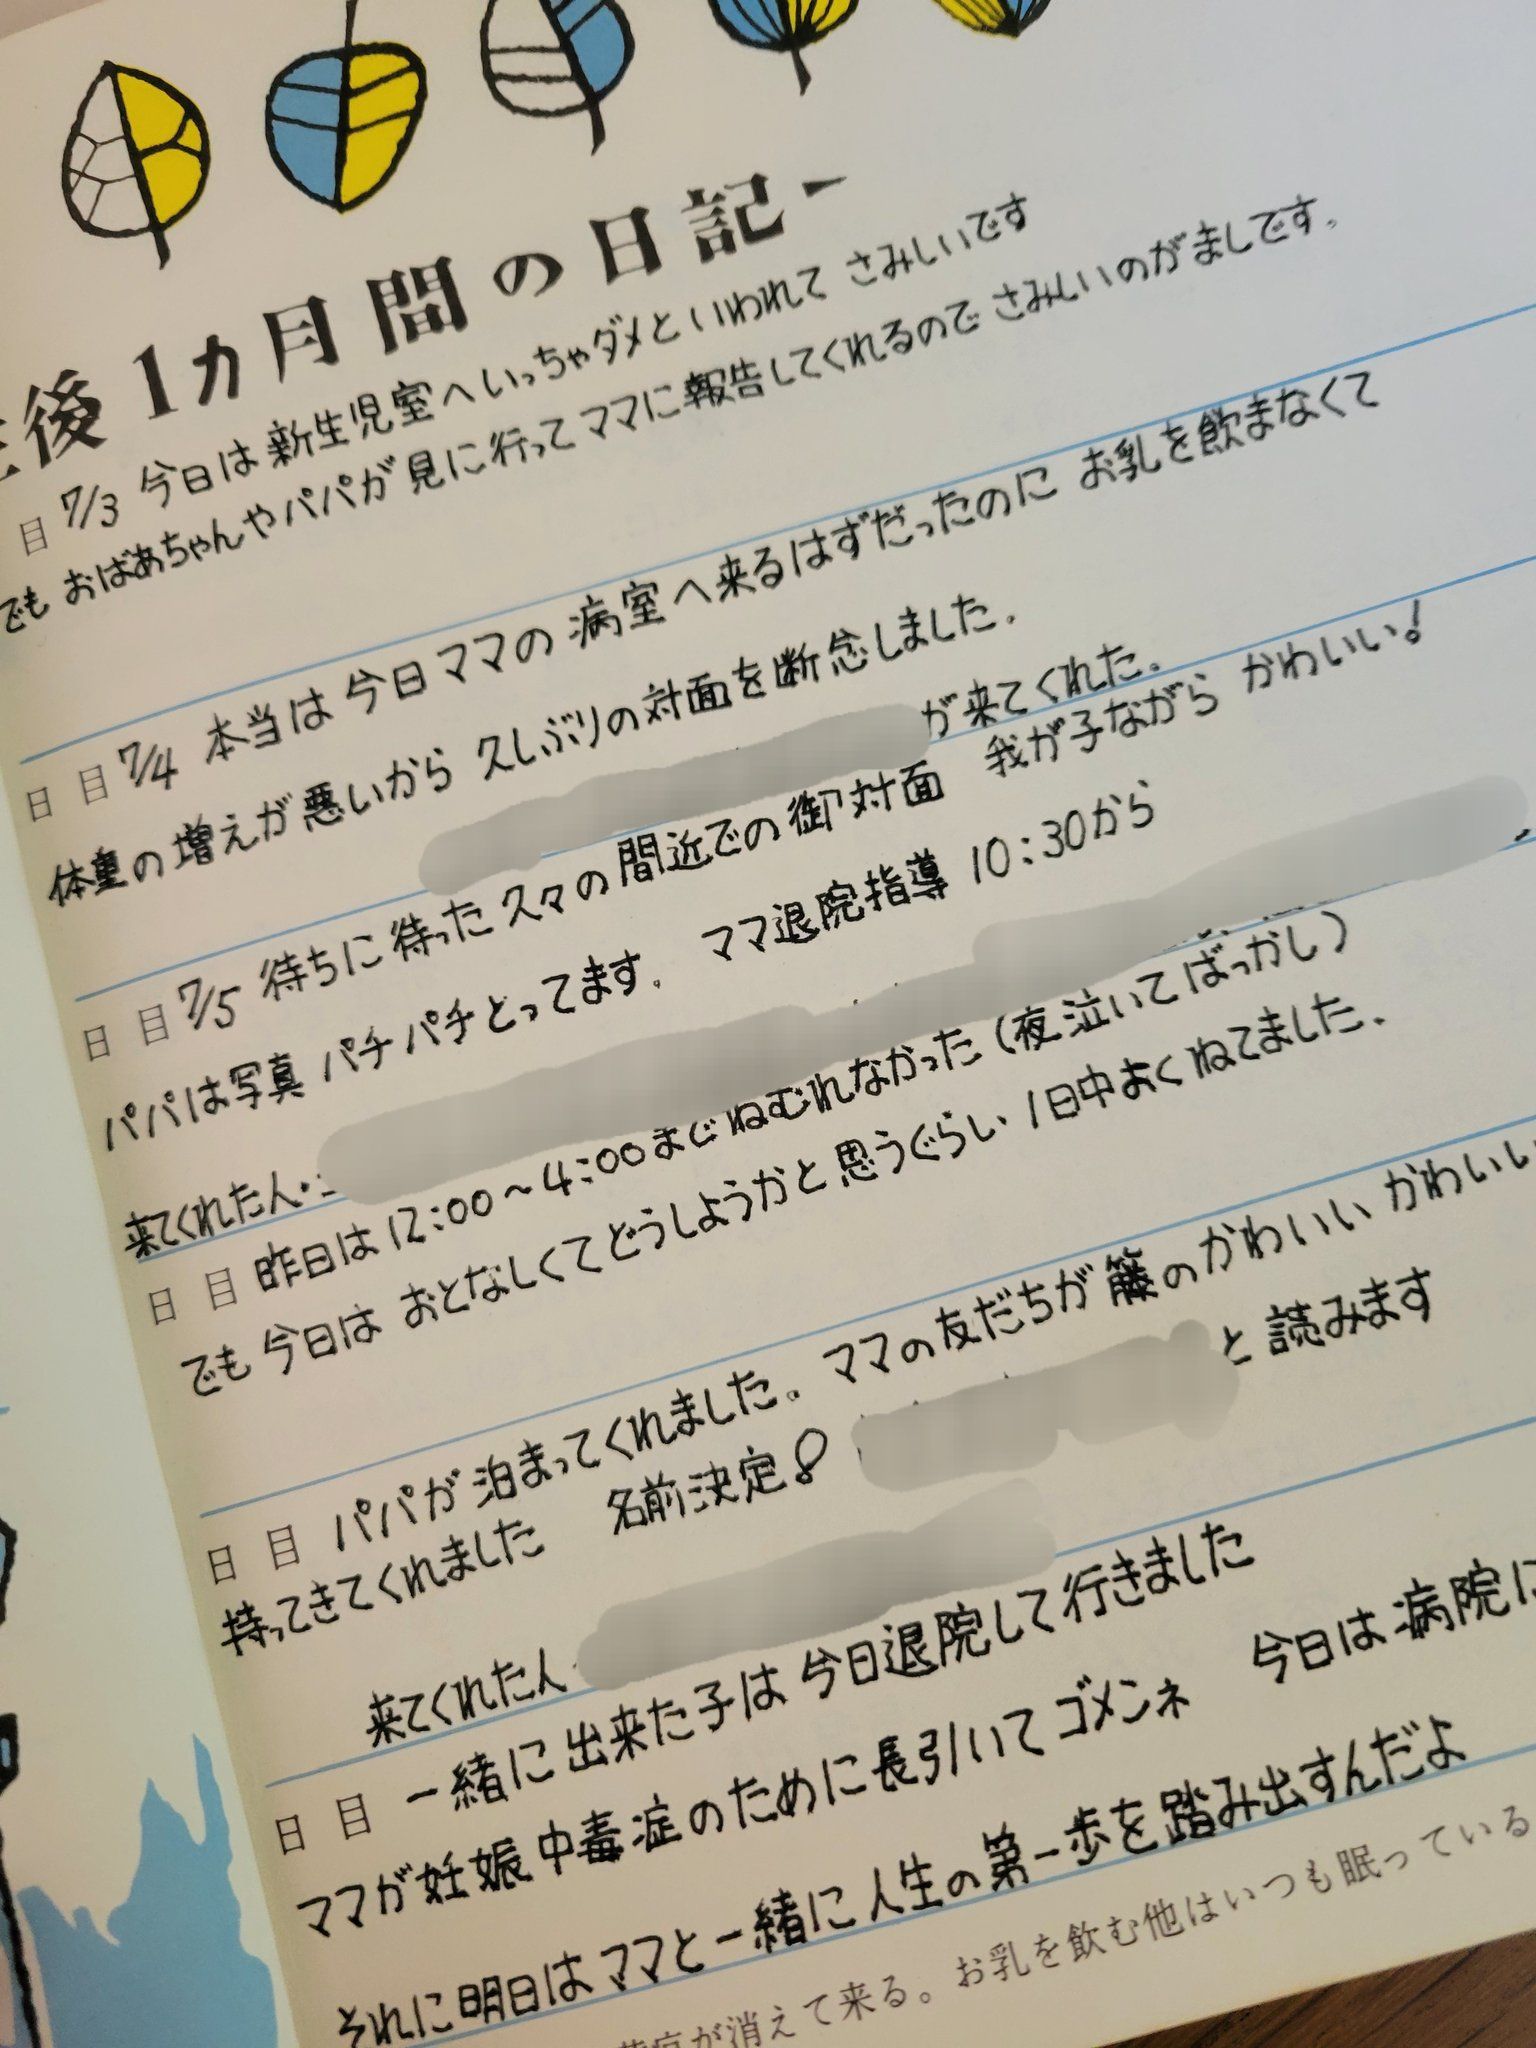 後1ヵ月間の日記-
日 7/3 今日は新生児室へいっちゃダメといわれて さみしいです
でも おばあちゃんやパパが見に行ってママに報告してくれるので さみしいのがましです.
日 目 7/4 本当は今日ママの病室へ来るはずだったのに お乳を飲まなくて
体重の増えが悪いから 久しぶりの対面を断念しました.
が来てくれた.
日 目 7/5 待ちに待った久々の間近での御対面 我が子ながら かわいい!
パパは写真パチパチとってます. ママ退院指導 10:30から
来てくれた人・
日 目 昨日は12:00~4:00までねむれなかった(夜泣いてばっかし)
でも今日は おとなしくてどうしようかと思うぐらい1日中よくねてました.
日 目 パパが泊まってくれました. ママの友だちが籐のかわいい かわいい
持ってきてくれました 名前決定 と読みます
来てくれた人
日 目 一緒に出来た子は今日退院して行きました
ママが妊娠中毒症のために長引いてゴメンネ 今日は病院に
それに明日はママと一緒に人生の第一歩を踏み出すんだよ
が消えて来る。お乳を飲む他はいつも眠っている